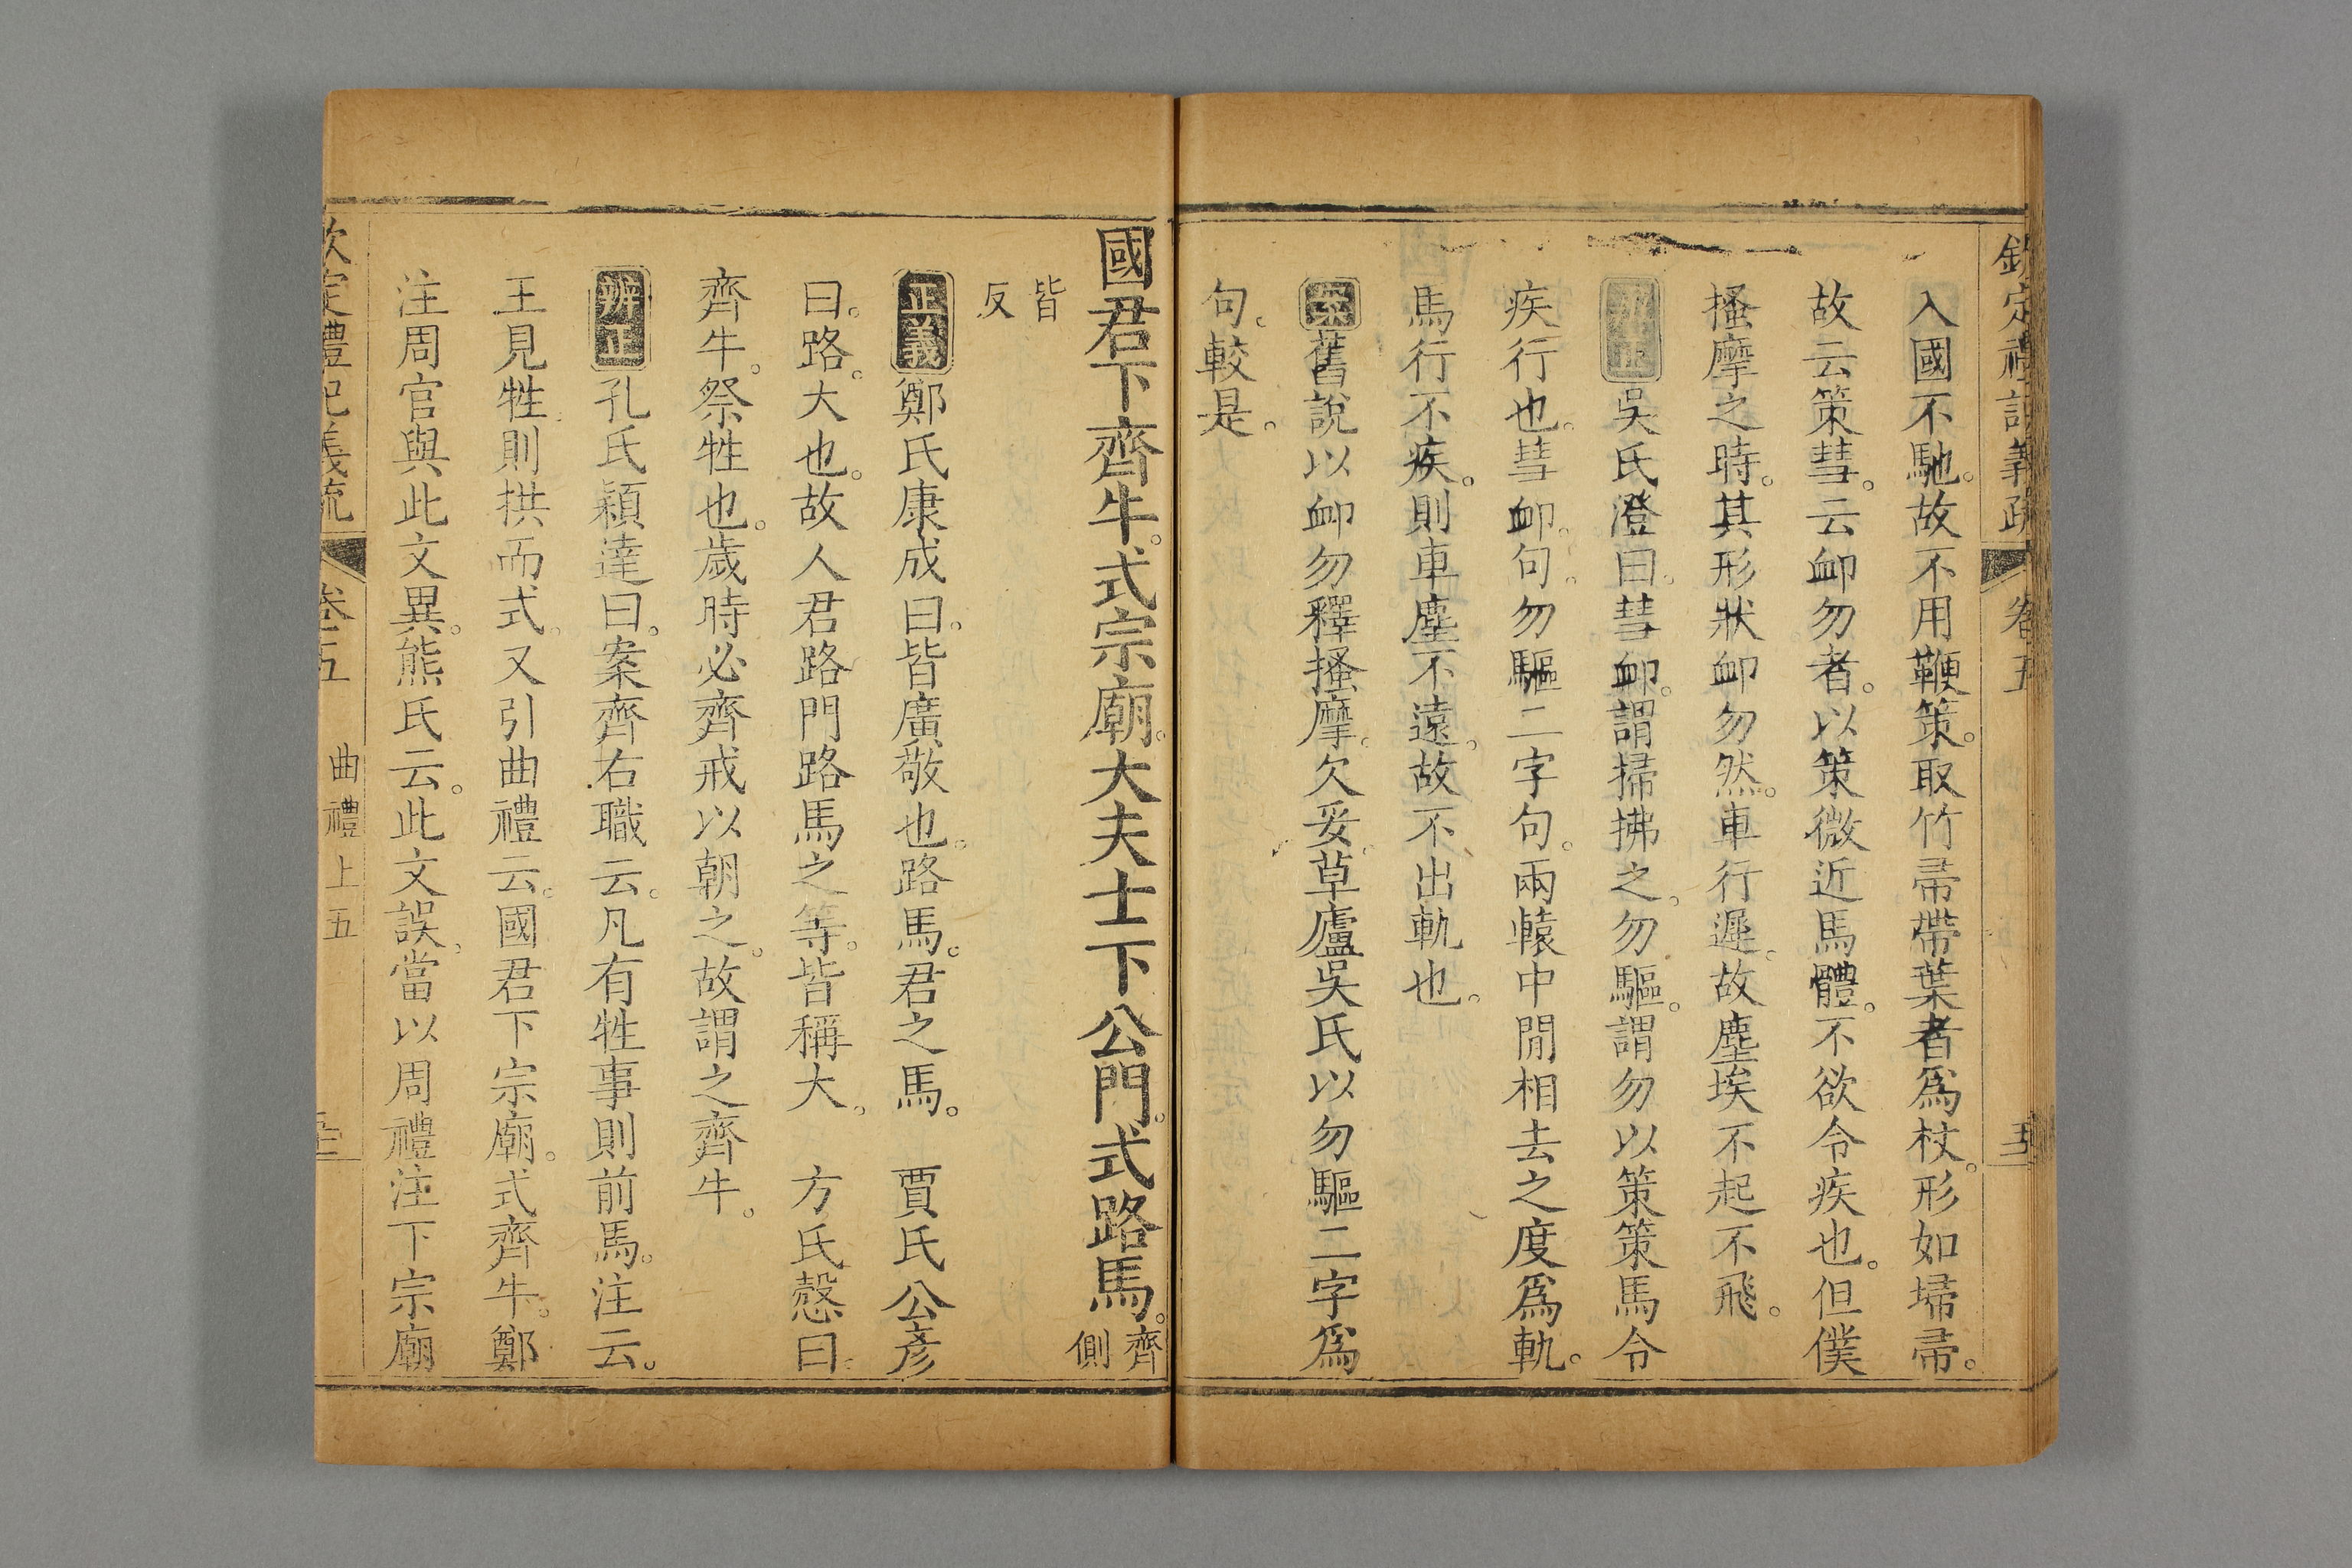 欽定禮記義疏 卷五
入國不馳。故不用鞭策。取竹帚帶葉者爲杖。形如埽帚。
故云策彗。云卹勿者。以策微近馬體。不欲令疾也。但僕
搔摩之時。其形狀卹勿然。車行遲。故塵埃不起不飛。
辨正吳氏澄曰。彗卹。謂掃拂之。勿驅。謂勿以策策馬令
疾行也。彗卹。句。勿驅二字句。兩轅中閒相去之度爲軌。
馬行不疾。則車塵不遠。故不出軌也。
案舊說以卹勿釋搔摩。欠妥。草廬吳氏以勿驅二字爲
句。較是。
國君下齊牛。式宗廟。大夫士下公門。式路馬。齊側
皆反
正義鄭氏康成曰。皆廣敬也。路馬。君之馬。 賈氏公彥
曰。路。大也。故人君路門路馬之等。皆稱大。 方氏慤曰。
齊牛。祭牲也。歲時必齊戒以朝之。故謂之齊牛。
辨正孔氏穎達曰。案齊右職云。凡有牲事則前馬。注云。
王見牲。則拱而式。又引曲禮云。國君下宗廟。式齊牛。鄭
注周官與此文異。熊氏云。此文誤。當以周禮注下宗廟
欽定禮記義疏 卷五 曲禮上五